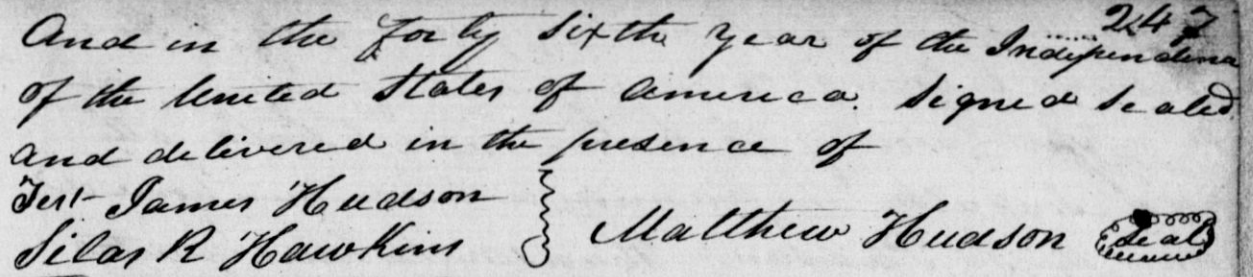 247
And in the forty Sixth year of the Independence
of the United States of America. Signed Sealed
and delivered in the presence of
Test James Hudson
Silas R Hawkins
Matthew Hudson Seal